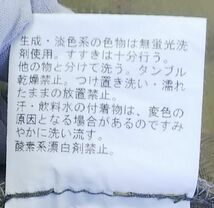 生成・淡色系の色物は無蛍光洗
剤使用。すすぎは十分行う。
他の物と分けて洗う。タンブル
乾燥禁止。つけ置き洗い・濡れ
たままの放置禁止。
汗・飲料水の付着物は、変色の
原因となる場合があるのですみ
やかに洗い流す。
酸素系漂白剤禁止。